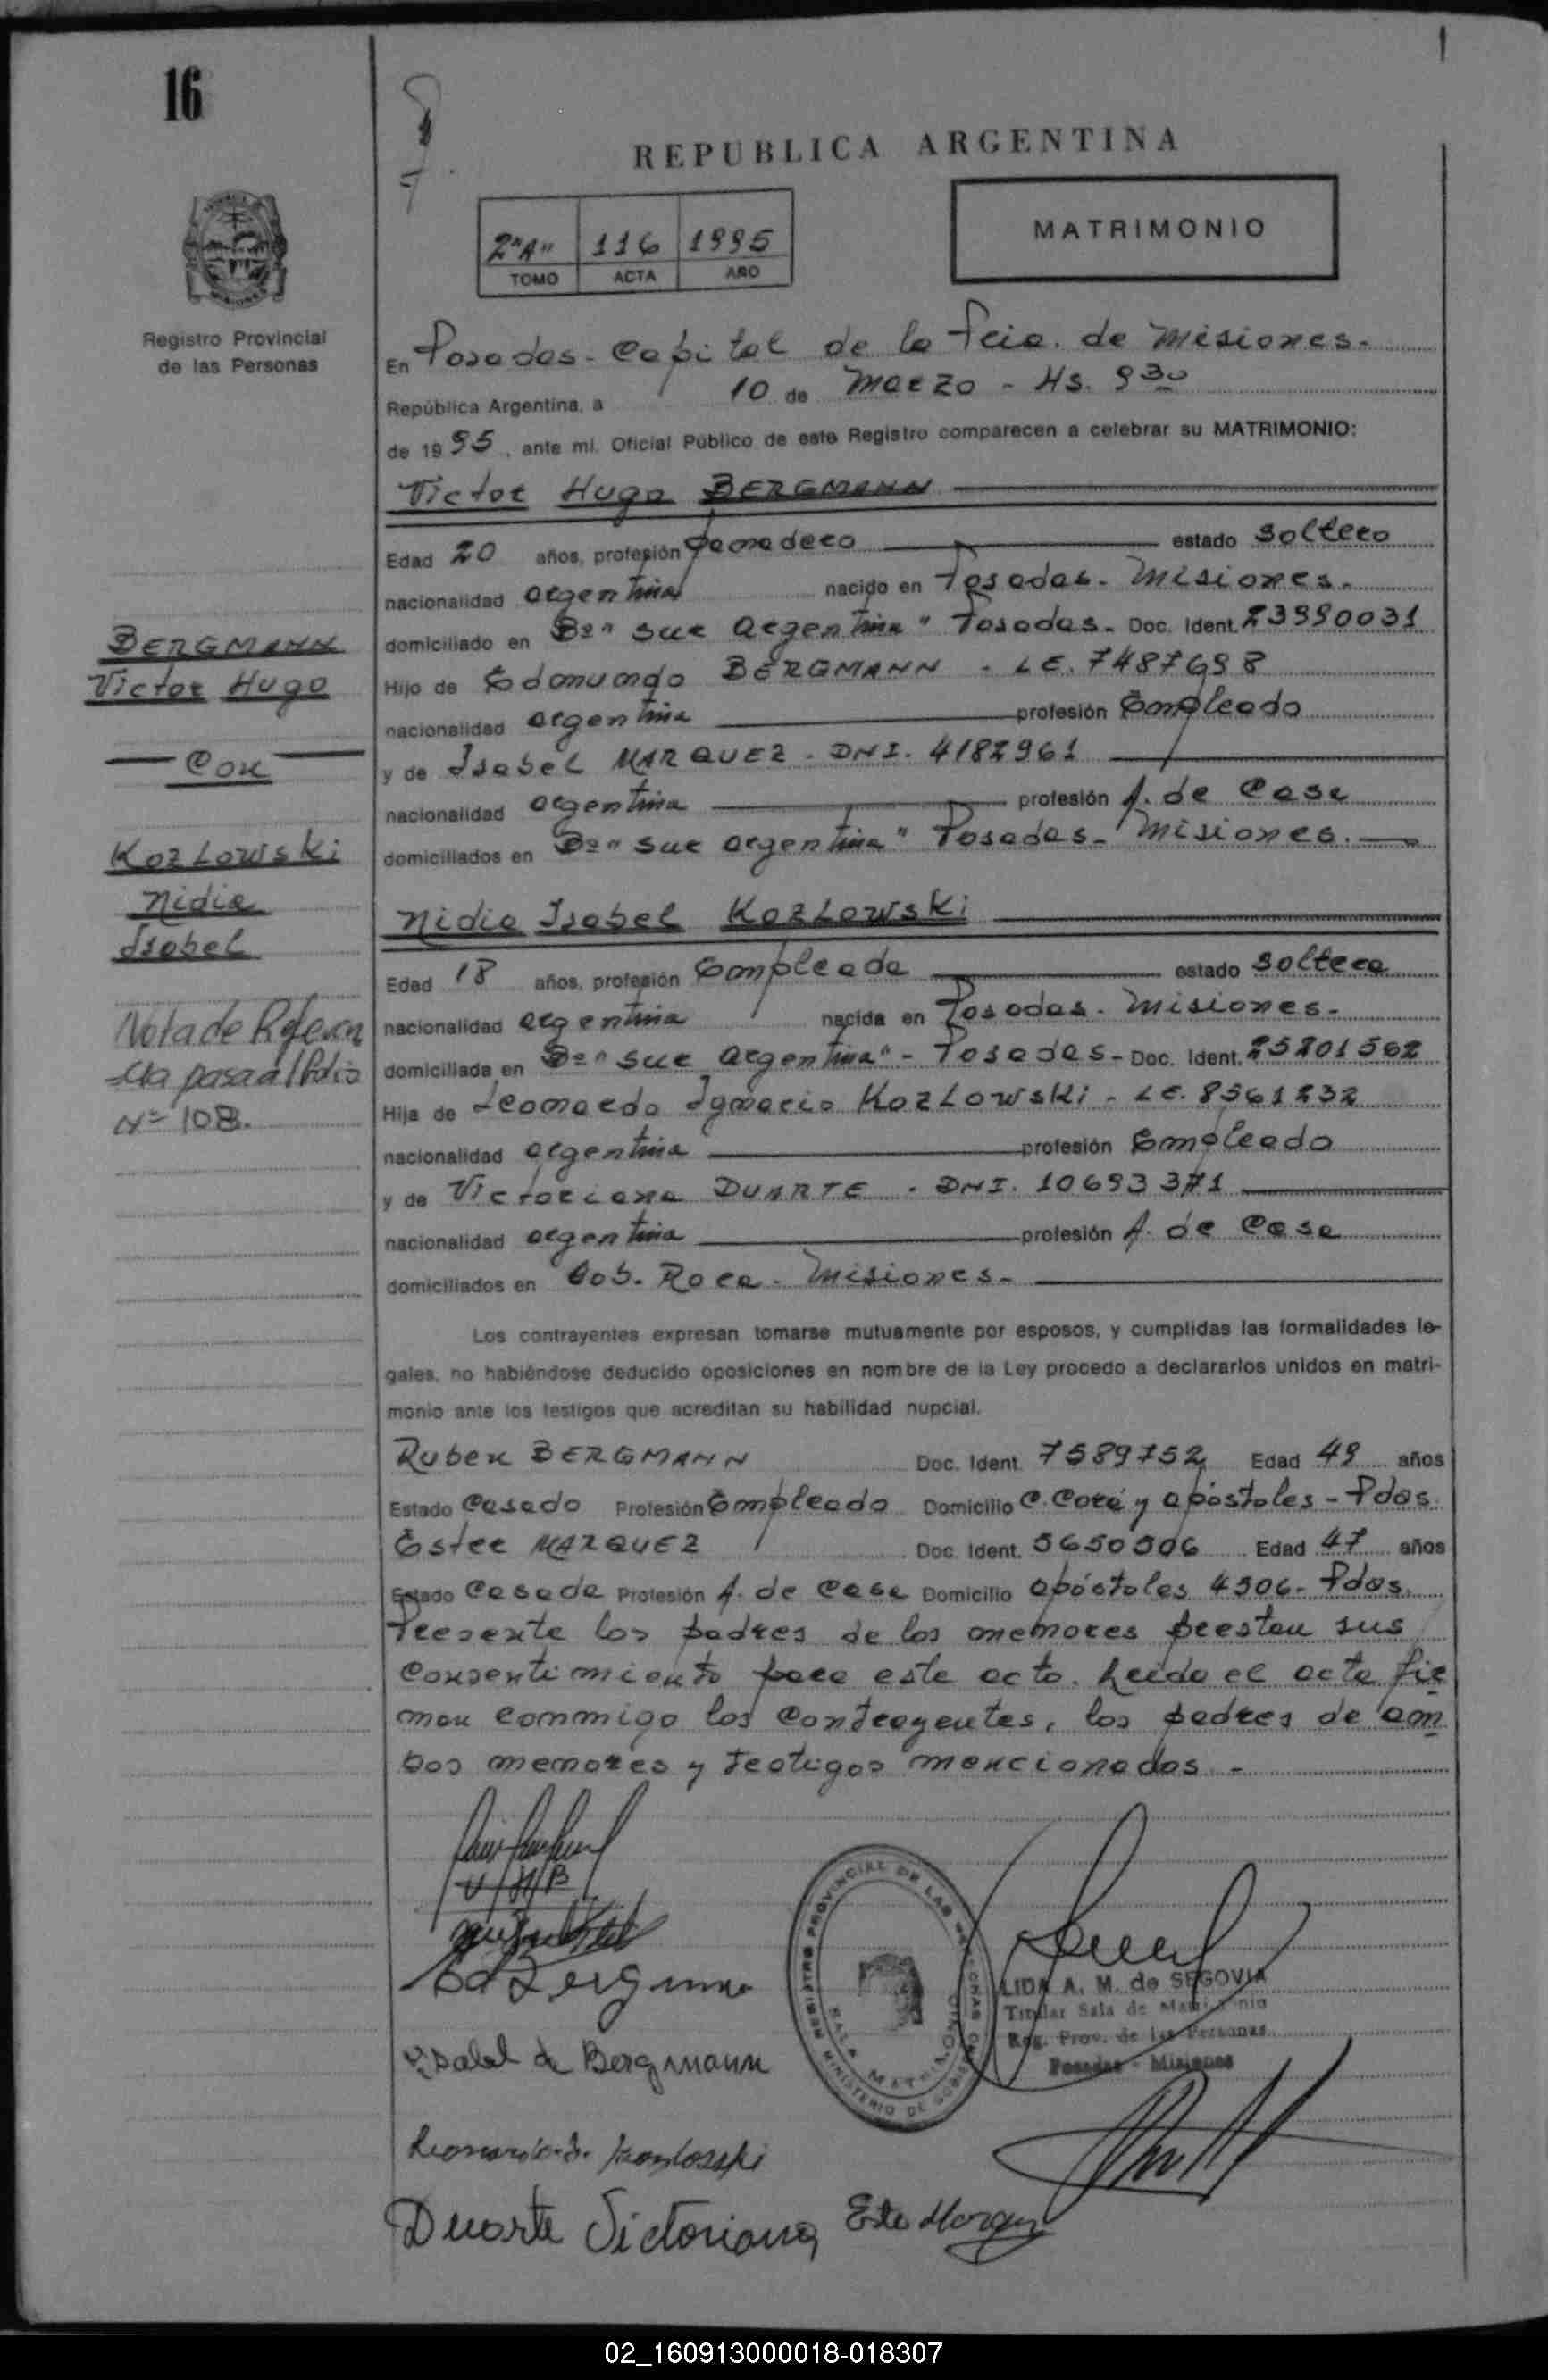 16
REPUBLICA ARGENTINA
2"A" 116 1995
TOMO ACTA AÑO
MATRIMONIO
Registro Provincial
de las Personas
En Posadas - Capital de la Pcia. de Misiones.
República Argentina, a 10 de Marzo - Hs. 9 30
de 1995, ante mí, Oficial Público de este Registro comparecen a celebrar su MATRIMONIO:
Victor Hugo BERGMANN
Edad 20 años, profesión estado soltero
nacionalidad argentina nacido en Posadas - Misiones.
domiciliado en Bº "Sur Argentina" Posadas - Doc. Ident. 23990031
Hijo de Edmundo BERGMANN - LE. 7487698
nacionalidad argentina profesión Empleado
y de Isabel MARQUEZ - DNI. 4182961
nacionalidad argentina profesión A. de Casa
domiciliados en Bº "Sur Argentina" Posadas - Misiones.
Nidia Isabel KOZLOWSKI
Edad 18 años, profesión Empleada estado soltera
nacionalidad argentina nacida en Posadas - Misiones.
domiciliada en Bº "Sur Argentina" - Posadas - Doc. Ident. 25201562
Hija de Leonardo Ignacio KOZLOWSKI - LE. 8561232
nacionalidad argentina profesión Empleado
y de Victoriana DUARTE - DNI. 10693371
nacionalidad argentina profesión A. de Casa
domiciliados en Gob. Roca - Misiones -
Los contrayentes expresan tomarse mutuamente por esposos, y cumplidas las formalidades le-
gales, no habiéndose deducido oposiciones en nombre de la Ley procedo a declararlos unidos en matri-
monio ante los testigos que acreditan su habilidad nupcial.
Ruben BERGMANN Doc. Ident. 7589752 Edad 49 años
Estado Casado Profesión Empleado Domicilio C. Corá y Apóstoles - Pdas.
Ester MARQUEZ Doc. Ident. 5650506 Edad 47 años
Estado Casada Profesión A. de Casa Domicilio Apóstoles 4506 - Pdas.
Presente los padres de los menores prestan sus
consentimiento para este acto. Leída el acta fir
man conmigo los contrayentes, los padres de am
bos menores y testigos mencionados. -
BERGMANN
Victor Hugo
Con
KOZLOWSKI
Nidia
Isabel
Nota de Referen
cia pasa al folio
Nº 108.
V/H/B
Isabel de Bergmann
Duarte Victoriana
REGISTRO PROVINCIAL DE LAS PERSONAS
MINISTERIO DE GOBIERNO
SALA MATRIMONIO
LIDA A. M. de SEGOVIA
Titular Sala de Matrimonio
Reg. Prov. de las Personas
Posadas - Misiones
02_160913000018-018307